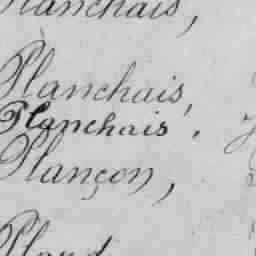 Planchais,
Planchais,
Planchais.
Plançon,